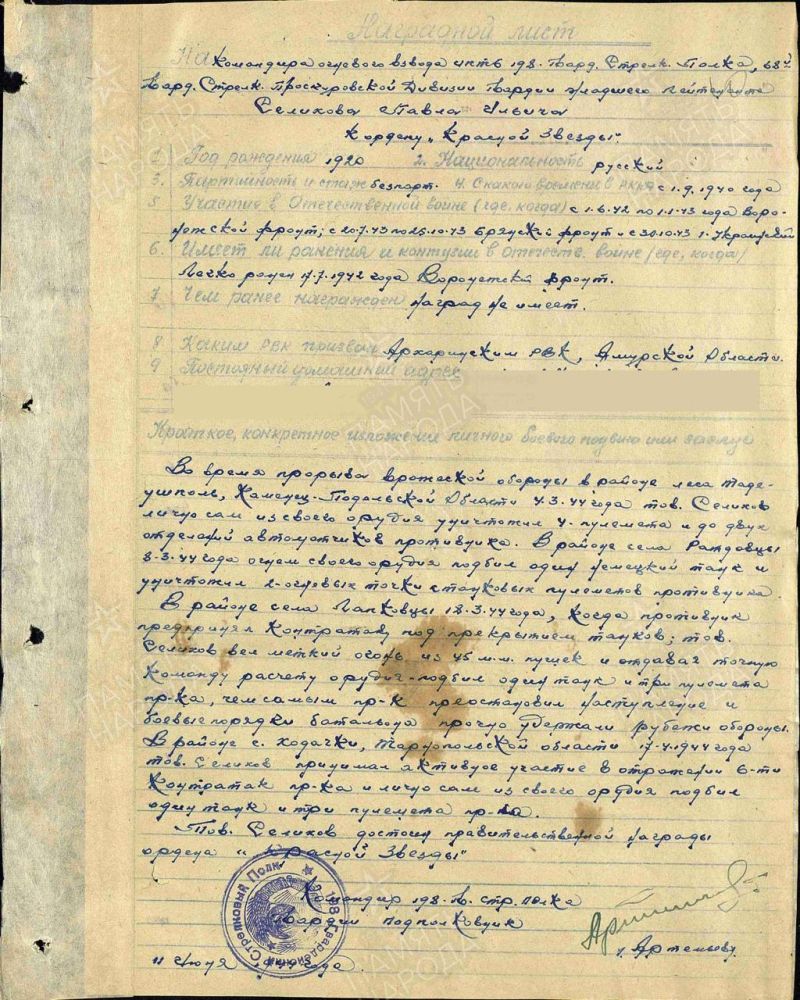 Наградной лист
На командира огневого взвода иптб 198. Гвард. Стрелк. Полка, 68й
Гвард. Стрелк. Проскуровской Дивизии Гвардии младшего лейтенанта
Селикова Павла Ильича
К ордену „Красной Звезды".
1. Год рождения 1920 2. Национальность русский
3. Партийность и стаж безпарт. 4. С какого времени в РККА с 1.9.1940 года
5 Участие в Отечественной войне (где, когда) с 1.6.42 по 1.1.43 года Воро-
нежской фронт; с 20.7.43 по 26.10.43 Брянский фронт и с 30.10.43 1-Украинский
6. Имеет ли ранения и контузии в отечеств. войне (где, когда)
Легко ранен 17.7.1942 года Воронежский фронт.
7 Чем ранее награжден наград не имеет.
8 Каким РВК призван Архаринским РВК, Амурской Области.
9 Постоянный домашний адрес
Краткое, конкретное изложение личного боевого подвига или заслуг
Во время прорыва вражеской обороны в района леса Таде-
ушполь, Каменец-Подольской Области 4.3.44 года тов. Селиков
лично сам из своего орудия уничтожил 4. пулемета и до двух
отделений автоматчиков противника. В районе села Ратдовцы
8-3.44 года огнем своего орудия подбил один немецкий танк и
уничтожил 2-огневых точки станковых пулеметов противника.
В районе села Лапковцы 18.3.44 года, когда противник
предпринял контратаку под прекрытием танков; тов.
Селиков вел меткий огонь из 45 м.м. пушек и отдавая точную
команду расчету орудия-подбил один танк и три пулемета
пр-ка, чем самым пр-к преостановил наступление и
боевые порядки батальона прочно удержали рубежи обороны.
В районе с. Ходачки, Тарнопольской области 17.4.1944 года
тов. Селиков принимал активное участие в отражении 6-ти
Контратак пр-ка и лично сам из своего орудия подбил
один танк и три пулемета пр-ка.
Тов. Селиков достоин правительственной награды
ордена „Красной Звезды"
Командир 198. Гв. стр. полка
Гвардии подполковник
/Артемьев/
11 июня 1944 года.
198 Гвардейский Стрелковый Полк
ПАМЯТЬ НАРОДА